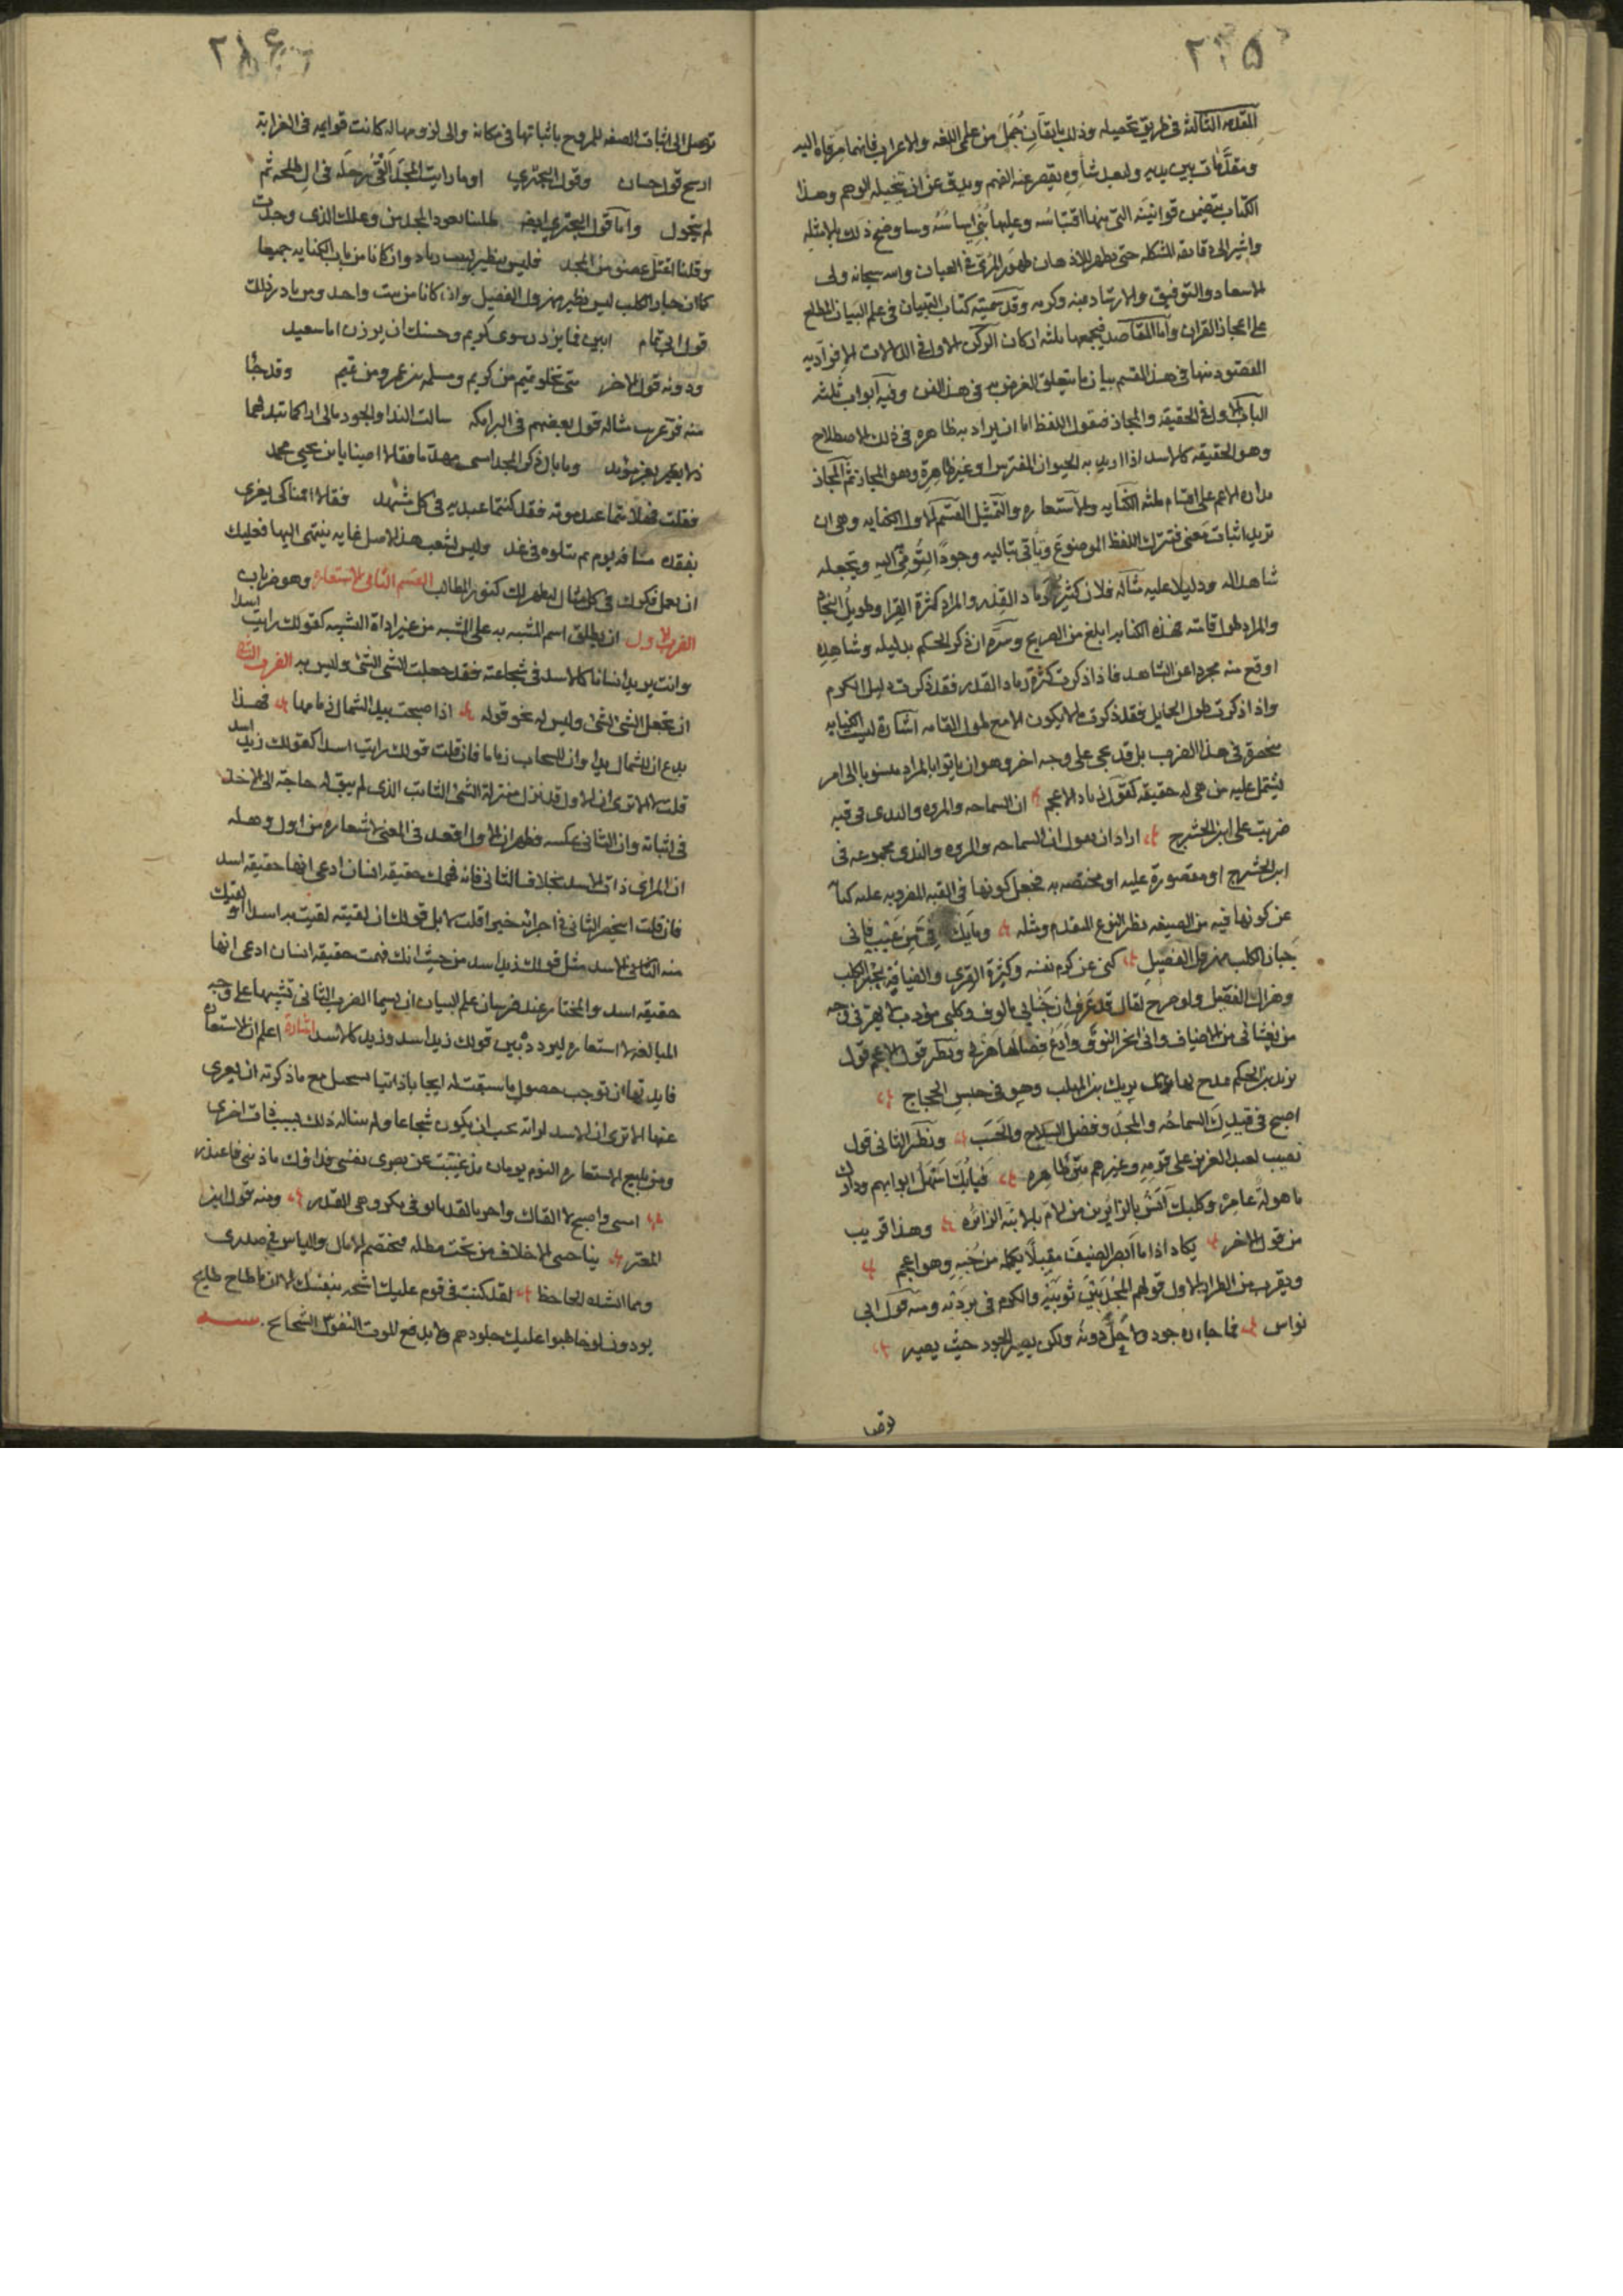 ٢٣٥
المقدمة الثالثة في طريق تحصيله وذلك باتقان جمل من علمي اللغه والاعراب فانهما مرقاة اليه
ومقدمات بين يديه ولبعد شأوه يقصر عنه الفهم ويدق عن ان تخيله الوهم وهذا
الكتاب يتضمن قوانينه التي منها اقتباسه وعليها بني اساسه وساوضح ذلك بالامثله
واشير الى دقائقه المشكله حتى يظهر للاذهان ظهور المرئي في العيان والله سبحانه ولي
الاسعاد والتوفيق والارشاد بمنه وكرمه وقد سميته كتاب التبيان في علم البيان المطلع
على اعجاز القران واما المقاصد فيجمعها ثلثه اركان الركن الاول في الدلالات الافراديه
المقصود منها في هذا القسم بيان ما يتعلق الغرض به في هذا الفن وفيه ابواب ثلثه
الباب الاول في الحقيقه والمجاز فنقول اللفظ اما ان يراد به ظاهره في ذلك الاصطلاح
وهو الحقيقه كالاسد اذا اريد به الحيوان المفترس او غير ظاهره وهو المجاز ثم المجاز
مداره الاعم على اقسام ثلثه الكنايه والاستعاره والتمثيل القسم الاول الكنايه وهي ان
تريد اثبات معنى فتترك اللفظ الموضوع وتاتي بتاليه وجودا لتومي به اليه وتجعله
شاهدا له ودليلا عليه مثاله فلان كثير رماد القدر والمراد كثرة القرا وطويل النجاد
والمراد طول قامته فهذه الكنايه ابلغ من الصريح وسره ان ذكر الحكم بدليله وشاهده
اوقع منه مجردا عن الشاهد فاذا ذكرت كثرة رماد القدر فقد ذكرت دليل الكرم
واذا ذكرت طول الحمايل فقد ذكرت ما لا يكون الا مع طول القامه اشارة ليست الكنايه
منحصرة في هذا الضرب بل قد تجي على وجه اخر وهو ان ياتوا بالمراد منسوبا الى امر
يشتمل عليه من هي له حقيقه كقول زياد الاعجم ان السماحه والمروه والندى في قبه
ضربت على ابن الحشرج اراد ان يقول ان السماحه والمروه والندى مجموعه في
ابن الحشرج او مقصورة عليه او مختصه به فجعل كونها في القبه المضروبه عليه كناية
عن كونها فيه من الصيغه نظر النوع المتقدم ومثله وما يك في من عيب فاني
جبان الكلب مهزول الفصيل كنى عن كرم نفسه وكثرة القرى والضيافة بجبن الكلب
وهزال الفصيل ولو صرح لقال قد عرف ان جنابي مالوف وكلبي مؤدب لا يهر في وجه
من يغشاني من الاضياف واني انحر النوق وادع فصالها هزلى ونظير قول الاعجم قول
يزيد بن الحكم مدح بها يزيد بن المهلب وهو في حبس الحجاج
اصبح في قيدك السماحه والمجد وفضل الصلاح والحسب ونظير الثاني قول
نصيب لعبد العزيز على قومه وغيرهم منن ظاهره فبابك اسهل ابوابهم ودارك
ماهولة عامره وكلبك آنس بالزائرين من الام بالابنة الزائره وهذا قريب
من قول الاخر يكاد اذا ما ابصر الضيف مقبلا يكلمه من حبه وهو اعجم
ويقرب من الطراز الاول قولهم المجد بين ثوبيه والكرم في بردته ومنه قول ابي
نواس فما جازه جود ولا حل دونه ولكن يصير الجود حيث يصير
توصل الى اثبات الصفه للممدوح باثباتها في مكانه والى لزومها له كانت قوايمه في الغرابة
قول حسان وقول البحتري او ما رايت المجد القى رحله في آل طلحه ثم
لم يتحول واما قول البحتري ايضا ظللنا نعود المجد من وعكك الذي وجدت
وقلنا اعتل عضو من المجد فليس بنظير لهيب رماد وان كانا من باب الكنايه جميعا
كما ان جبان الكلب ليس نظير مهزول الفصيل وان كانا من بيت واحد ومن نادر ذلك
قول ابي تمام ابين فما يزرن سوى كريم وحسبك ان يزرن ابا سعيد
ودونه قول الاخر متى تخلو تميم من كريم ومسلم بن عمرو من تميم وقد جا
منه فن غريب مثاله قول بعضهم في البرامكه سالت الندا والجود مالي اراكما تبدلتما
ذلا بعز مؤبد وما بال ركن المجد امسى مهدما فقالا اصبنا بابن يحيى محمد
فقلت فهلا متما عند موته فقد كنتما عبديه في كل مشهد فقالا اقمنا كي نعزى
بفقده مسافة يوم ثم نتلوه في غد وليس لشعب هذا الاصل غايه ينتهي اليها فعليك
ان تعمل فكرك في كل مثال ليظهر لك كنوز المطالب القسم الثاني الاستعاره وهو ضربان
الضرب الاول ان يطلق اسم المشبه به على المشبه من غير اداة التشبيه كقولك رايت اسدا
وانت تريد انسانا كالاسد في شجاعته فقد جعلت الشي الشيء وليس به الضرب الثاني
ان تجعل الشي للشي وليس له نحو قوله اذ اصبحت بيد الشمال زمامها فهذا
يدع ان للشمال يدا وان للسحاب زماما فان قلت قولك رايت اسدا كقولك زيد اسد
قلت لا الا ترى ان الاول قد نزل منزلة الشي الثابت الذي لم يبق له حاجة الى الاخذ
في اثباته وان الثاني عكسه فظهر ان الاول اقعد في المعنى لاشعاره من اول وهله
ان المراي ذات الاسد بخلاف الثاني فانه فهمك حقيقه انسان ادعى انها حقيقه اسد
فان قلت اينحصر الثاني في اجرائه خبرا قلت لا بل قولك ان لقيته لقيت به اسدا او لقيك
منه الاسد مثل قولك زيد اسد من حيث انك فهمت حقيقه انسان ادعى انها
حقيقه اسد والمختار عند فرسان علم البيان ان يسما الضرب الثاني تشبيها على وجه
المبالغه لا استعاره بين قولك زيد اسد وزيد كالاسد اشارة اعلم ان الاستعاره
فايدتها ان توجب حصول ما سبقت له ايجابا ذاتيا يستحيل مع ما ذكرته ان يعرى
عنها الا ترى ان الاسد لو انه يجب ان يكون شجاعا ولم يناله ذلك بسبب صفات اخرى
ومن مليح الاستعاره اليوم يومان مذ غيبت عن بصري نفسي فداؤك ما ذنبي فاعتذر
امسى واصبح لا القاك واحربا لقد تانق في مكروهي القدر ومنه قول ابن
المعتز يناجيني الاخلاف من تحت مطله فتختصم الامال والياس في صدري
ومما انشده الجاحظ لقد كنت في قوم عليك اشحه بنفسك الا ان ما طاح طايح
يودون لو خاطوا عليك جلودهم ولا يدفع الموت النفوس الشحايح